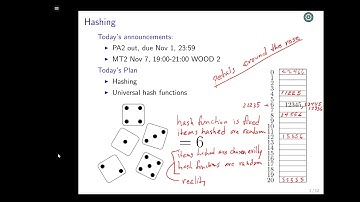 Hashing
Today's announcements:
PA2 out, due Nov 1, 23:59
MT2 Nov 7, 19:00-21:00 WOOD 2
Today's Plan
Hashing
Universal hash functions
petals around the rose
hash function is fixed
items hashed are random
= 6
items hashed are chosen evilly
hash functions are random
reality
21235 → 6
0
1
2
3
4
5
7
8
9
10
11
12
13
14
15
16
17
18
19
20
12345